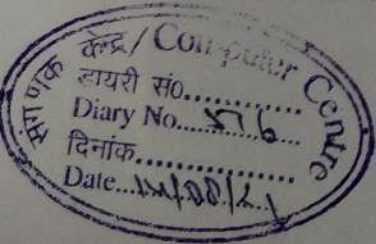 संगणक केन्द्र / Computer Centre
डायरी सं०..............
Diary No..............
दिनांक..............
Date...